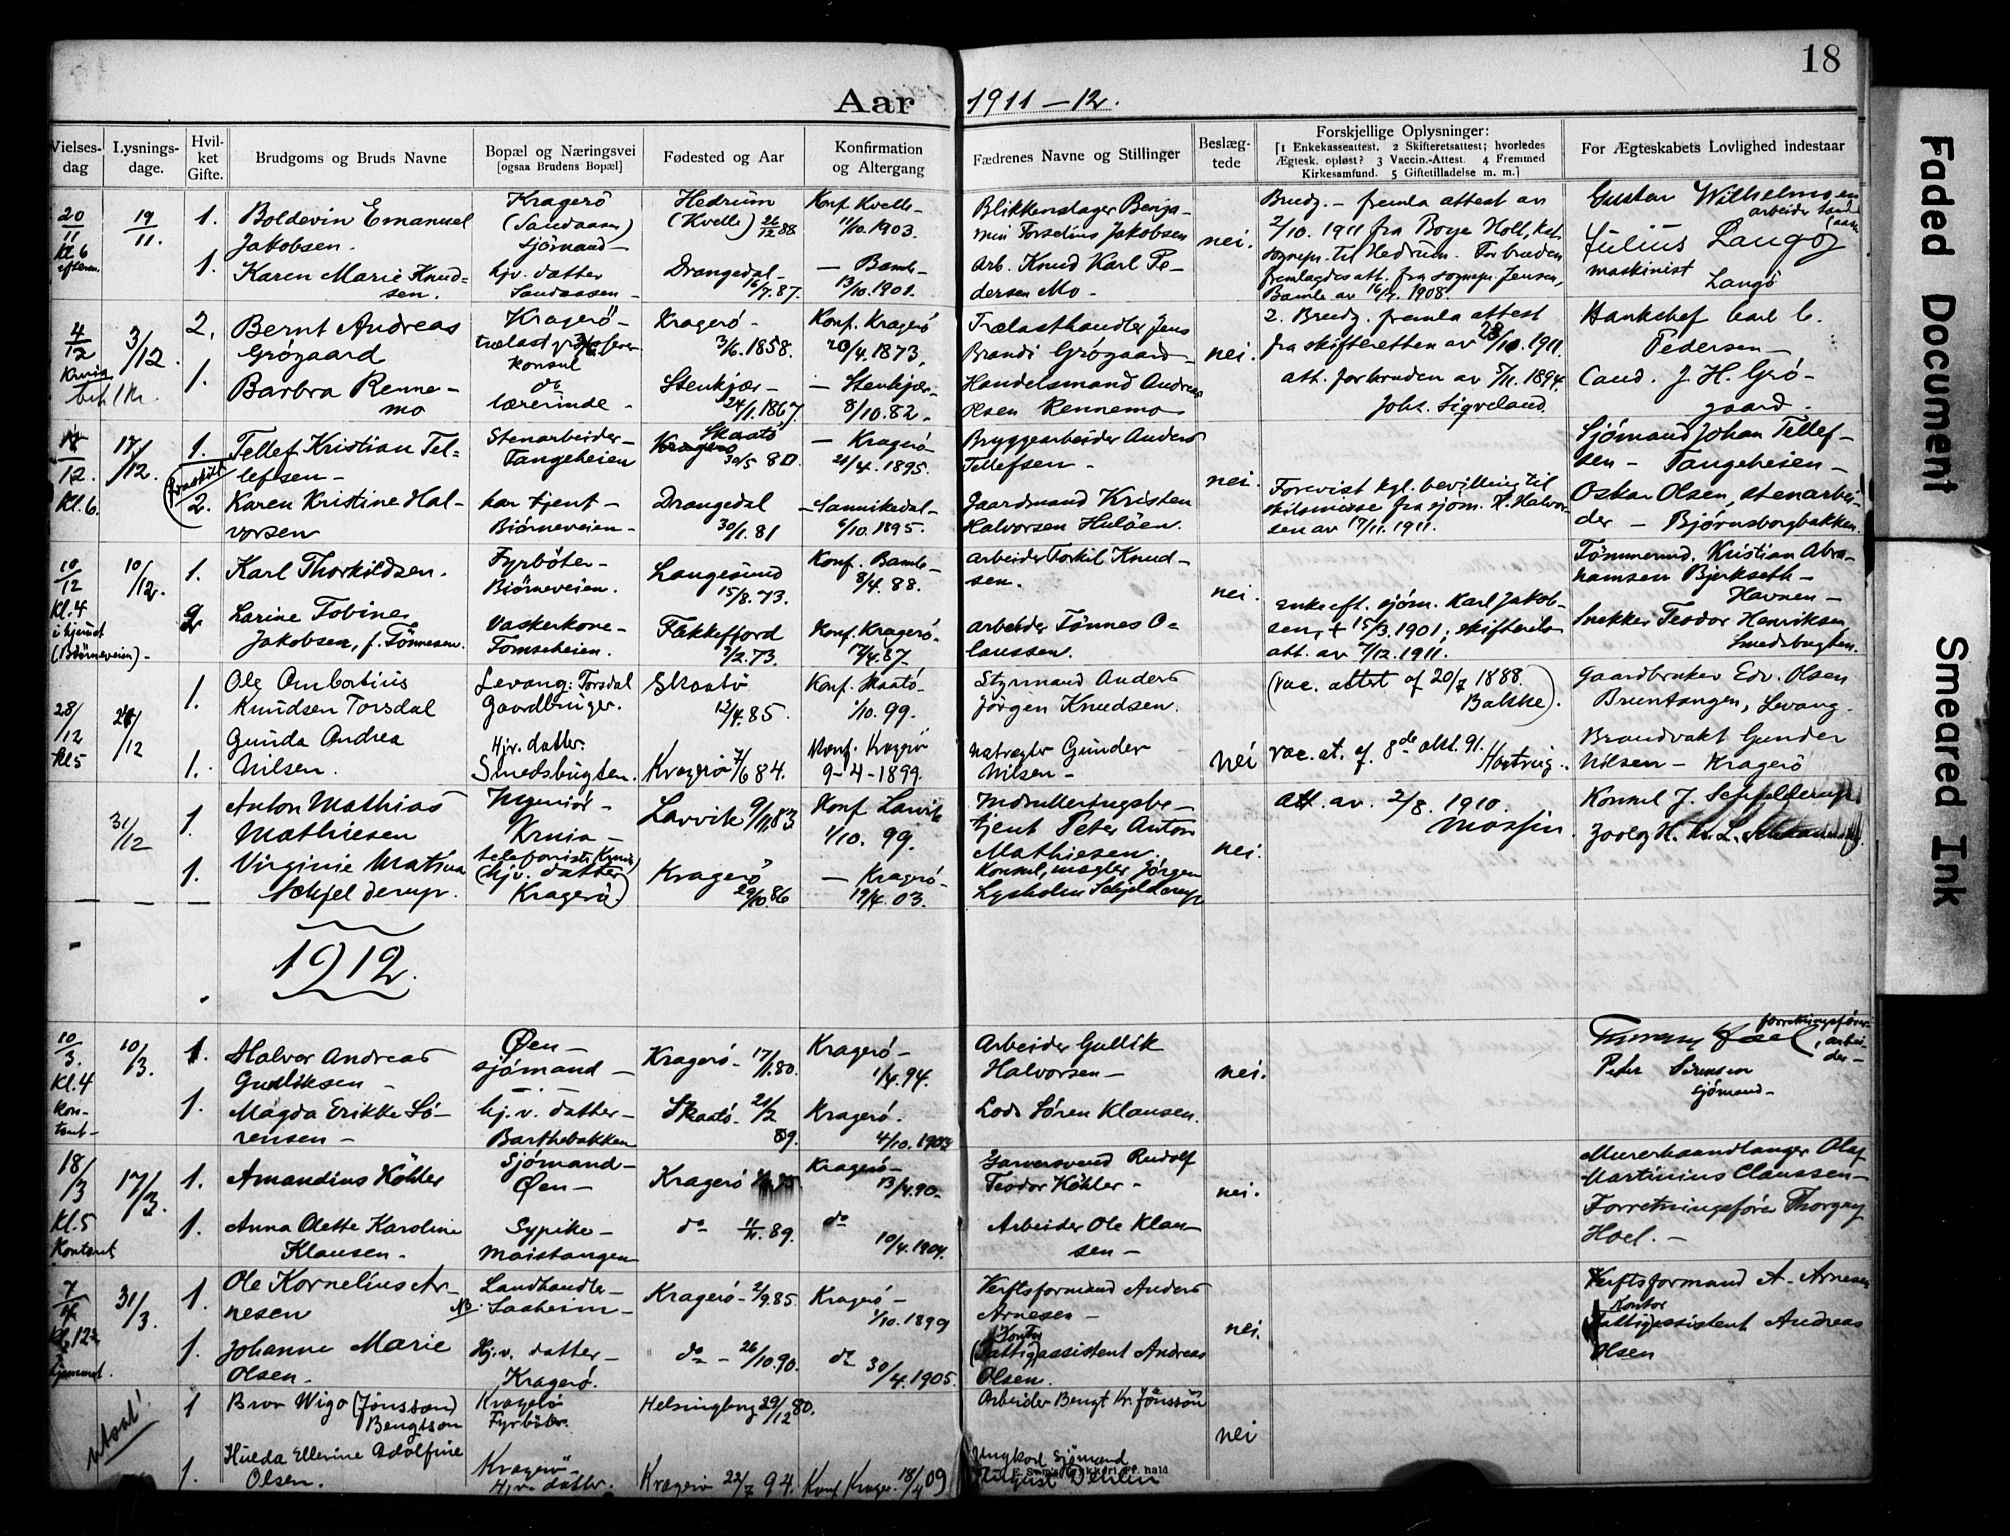 18
Aar 1911-12.
Vielses-dag
Lysnings-dage.
Hvil-ket Gifte.
Brudgoms og Bruds Navne
Bopæl og Næringsvei
[ogsaa Brudens Bopæl]
Fødested og Aar
Konfirmation og Altergang
Fædrenes Navne og Stillinger
Beslæg-tede
Forskjellige Oplysninger:
[1 Enkekasseattest. 2 Skifteretsattest; hvorledes
Ægtesk. opløst? 3 Vaccin.-Attest. 4 Fremmed
Kirkesamfund. 5 Giftetilladelse m. m.]
For Ægteskabets Lovlighed indestaar
20/11 Kl. 6 efterm.
19/11.
1. Boldevin Emanuel
Jakobsen.
Kragerö
(Sandaasen)
Sjömand -
Hedrum
(Kvelle) 26/12 88
Konf. Kvelle -
11/10. 1903.
Blikkenslager Benja-
min Forselius Jakobsen
nei.
Brudg. - fremla attest av
2/10. 1911 fra Boye Holt, kst.
sognepr. til Hedrum. For bruden
fremlagdes att. fra sognepr. Jensen,
Bamle av 16/7. 1908.
Gustav Wilhelmsen
arbeider Sand-
aasen
Julius Langöy
maskinist
Langö
1. Karen Marie Knud-
sen.
hjv. datter
Sandaasen -
Drangedal -
16/7. 87.
- Bamle -
13/10. 1901.
Arb. Knud Karl Pe-
dersen Mo -
4/12
3/12.
2. Bernt Andreas
Grögaard
Kragerö -
konsul
Kragerö -
3/6. 1858.
Konf. Kragerö
20/4. 1873,
Trælasthandler Jens
Brandi Grögaard -
nei.
2. Brudg. fremla attest
fra skifteretten av 28/10. 1911.
att. for bruden av 5/11. 1894.
Johs. Sigveland.
Bankchef Carl C.
Pedersen -
Cand. J. H. Grö-
gaard.
1. Barbra Renne-
mo
do
lærerinde -
Stenkjær -
24/1. 1867
- Stenkjær -
8/10. 82.
Handelsmand Andreas
Olsen Rennemo
/12. Kl. 6.
17/12.
1. Tellef Kristian Tel-
lefsen -
Stenarbeider -
Tangeheien
Skaatö
30/5 80.
- Kragerö
21/4. 1895.
Bryggearbeider Anders
Tellefsen -
nei.
Sjömand Johan Tellef-
sen - Tangeheien -
(fraskilt) 2. Karen Kristine Hal-
vorsen
har tjent -
Biörneveien -
Drangedal
30/1. 81
- Sannikedal -
6/10. 1895.
Gaardmand Kristen
Halvorsen Hulöen.
Forevist kgl. bevilling til
skilsmisse fra sjöm. K. Halvor-
sen av 17/11. 1911.
Oskar Olsen, stenarbei-
der - Bjørnsborgbakken.
10/12 Kl. 4 i hjemmet (Biörneveien) -
10/12.
1. Karl Thorkildsen.
Fyrböter -
Biörneveien.
Langesund
15/8. 73.
Konf. Bamle -
8/4. 88.
Arbeider Torkil Knud-
sen.
nei.
Tömmermd. Kristian Abra-
hamsen Bjerkseth -
Havnen -
2 Larine Tobine
Jakobsen, f. Tönnesen.
Vaskerkone -
Tomseheien.
Flekkefjord
2/2. 73.
Konf. Kragerö.
17/4. 87.
Arbeider Tönnes O-
laussen.
enke eft. sjöm. Karl Jakob-
sen, + 15/3. 1901; skifterets
att. av 7/12. 1911.
Snekker Teodor Henriksen,
Smedsbugten.
28/12 kl 5
24/12
1. Ole Ambortius
Knudsen Torsdal
Levang: Torsdal
Gaardbruger.
Skaatö
12/4. 85.
Konf. Skaatö -
1/10. 99.
Styrmand Anders
Jörgen Knudsen.
(vac. attest af 20/7 1888.
Bakke).
Gaardbruker Edv. Olsen
Bruntangen, Levang.
1. Gunda Andrea
Nilsen.
Hjv. datter.
Smedsbugten.
Kragerö 7/6 84.
Konf. Kragerö
9-4-1899.
Gunder
Nilsen -
nei
vac. at. af 8de okt. 91.
Brandvakt Gunder
Nilsen - Kragerö
31/12
1. Anton Mathias
Mathiesen
Ingeniör -
Larvik 9/11 83
Konf Larvik
1/10. 99.
Peter Anton
Mathiesen.
nei.
att. av. 2/8. 1910.
Konsul J. Schjelderup
1. Virginie Mathea
Schjelderup.
(hjv. datter)
Kragerö.
Kragerö
29/10. 86
- Kragerö -
19/4. 03.
Konsul, mægler Jörgen
Lysholm Schjelderup
1912.
10/3. Kl. 4 Kon-tort -
10/3.
1. Halvor Andreas
Gulliksen -
Øen -
sjömand -
Kragerö - 17/1. 80.
Kragerö -
1/4. 94.
Arbeider Gullik
Halvorsen -
nei.
forretningsförer
, arbei-
der -
Peter Sörensen
sjömand -
1. Magda Erikke Sö-
rensen -
hj. v. datter -
Barthebakken
Skaatö - 21/2
89.
Kragerö.
4/10. 1903
Lods Sören Klausen.
18/3 Kl. 5 Kontoret
17/3.
1. Amandius Köhler
Sjömand -
Øen -
Kragerö
Kragerö -
13/4. 90.
Garversvend Rudolf
Teodor Köhler -
nei.
Murerhaandlanger Olaf
Martinius Claussen -
Forretningsförer Thorgny
Hoel. -
1. Anna Olette Karoline
Klausen -
Sypike -
Maistangen
do 89.
do
10/4. 1904.
Arbeider Ole Klau-
sen -
7/4 Kl. 12
31/3.
1. Ole Kornelius Ar-
nesen
Landhandler -
Saaheim -
Kragerö - 2/9. 85.
Kragerö -
1/10. 1899
Verftsformand Anders
Arnesen -
nei.
Verftsformand A. Arnesen
1. Johanne Marie
Olsen.
Hj. v. datter -
Kragerö.
do - 26/10. 90.
do 30/4. 1905.
Kontor
(Fattig)assistent Andreas
Olsen.
Kontor
(Fattig)assistent Andreas
Olsen
utsat!
1 Bror Wigo (Jönsson)
Bengtson
Kragerö
Fyrböter.
Helsingborg 29/12 80.
Arbeider Bengt Kr. Jönsson
nei
1. Hulda Ellerine Adolfine
Olsen.
Kragerö -
Hjv. datter.
Kragerö 22/7 94.
Konf Krager. 18/4 09
Ungkarl Sjömand
August Dehlin
Faded Document
Smeared Ink